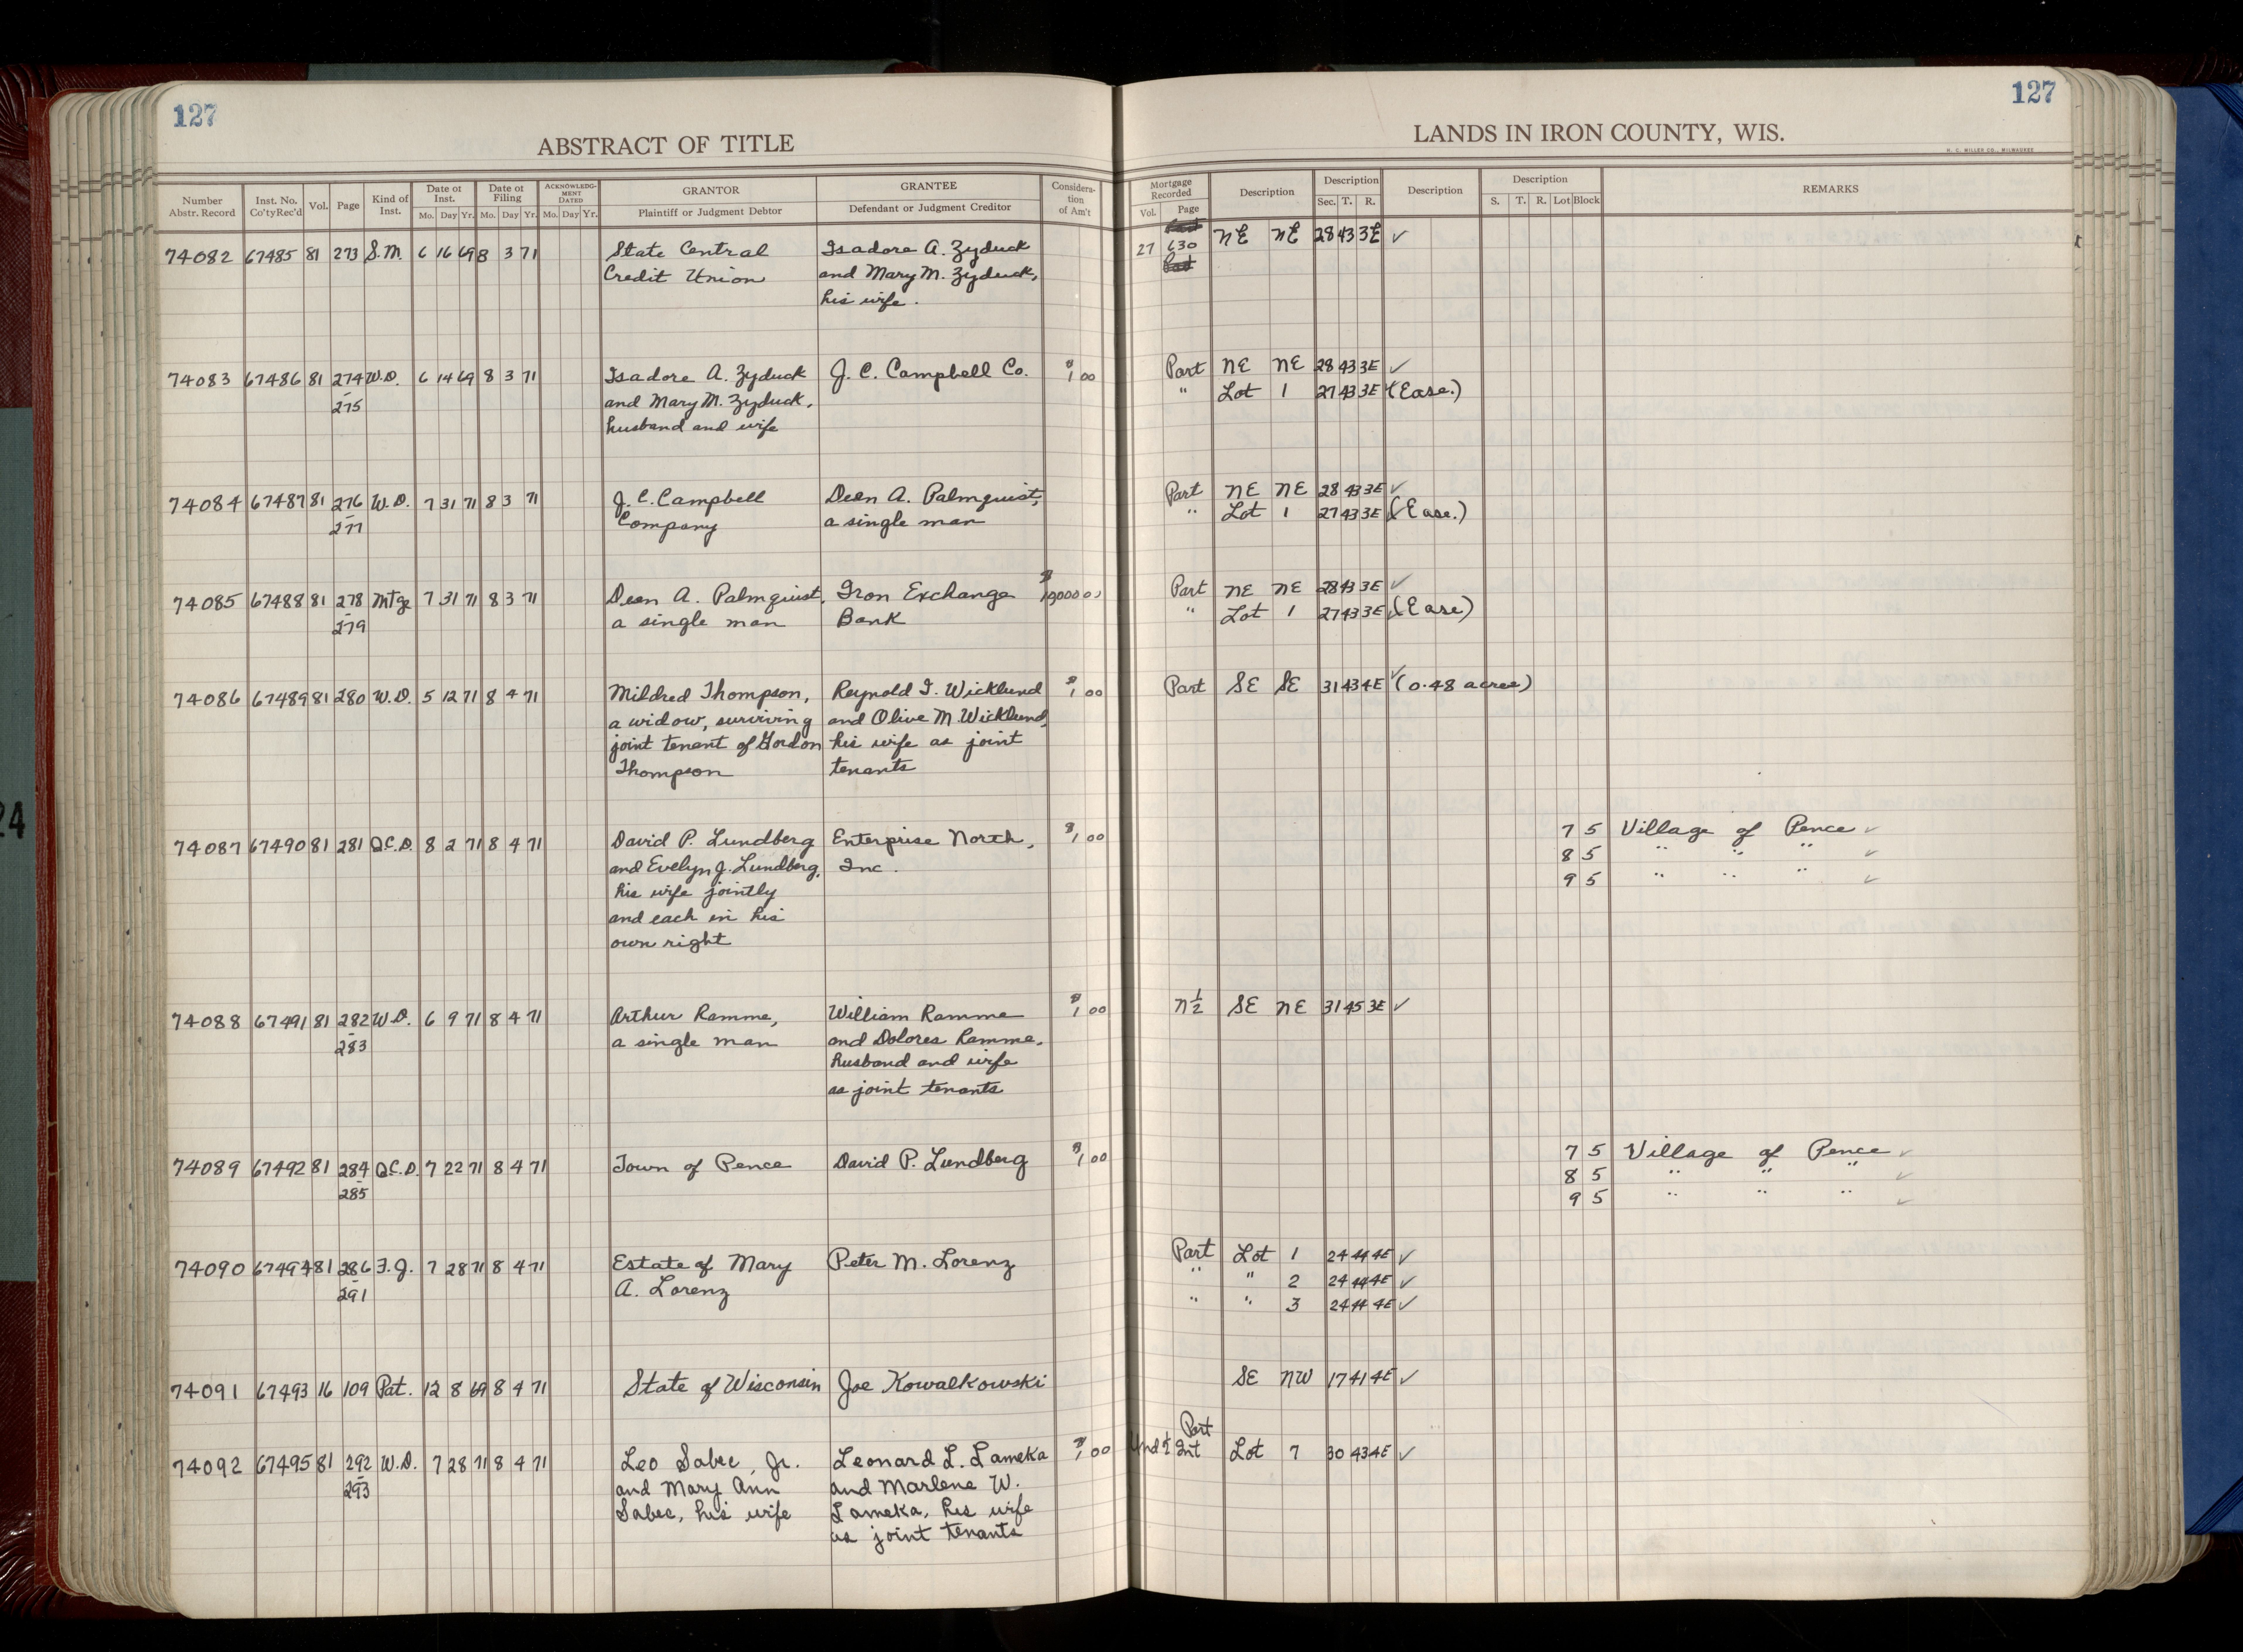 127
127
ABSTRACT OF TITLE
LANDS IN IRON COUNTY, WIS.
H. C. MILLER CO., MILWAUKEE
Number Abstr. Record Inst. No. Co'tyRec'd Vol. Page Kind of Inst. Date of Inst. Mo. Day Yr. Date of Filing Mo. Day Yr. ACKNOWLEDGMENT DATED Mo. Day Yr. GRANTOR Plaintiff or Judgment Debtor GRANTEE Defendant or Judgment Creditor Consideration of Am't Mortgage Recorded Vol. Page Description Description Sec. T. R. Description Description S. T. R. Lot Block REMARKS
74082 67485 81 273 S.M. 6 16 69 8 3 71 State Central Isadore A. Zyduck 27 630 NE NE 28 43 3E ✓
Credit Union and Mary M. Zyduck,
his wife.
74083 67486 81 274 W.D. 6 14 69 8 3 71 Isadore A. Zyduck J. C. Campbell Co. $1 00 Part NE NE 28 43 3E ✓
- 275 and Mary M. Zyduck, " Lot 1 27 43 3E ✓ (Ease.)
husband and wife
74084 67487 81 276 W.D. 7 31 71 8 3 71 J. C. Campbell Deen A. Palmquist, Part NE NE 28 43 3E ✓
- 277 Company a single man " Lot 1 27 43 3E ✓ (Ease.)
74085 67488 81 278 Mtge 7 31 71 8 3 71 Deen A. Palmquist, Iron Exchange Part NE NE 28 43 3E ✓
- 279 a single man Bank " Lot 1 27 43 3E ✓ (Ease)
74086 67489 81 280 W.D. 5 12 71 8 4 71 Mildred Thompson, Reynold I. Wicklund $1 00 Part SE SE 31 43 4E ✓ (0.48 acres)
a widow, surviving and Olive M. Wicklund,
joint tenant of Gordon his wife as joint
Thompson tenants
74087 67490 81 281 Q.C.D. 8 2 71 8 4 71 David P. Lundberg Enterprise North, $1 00 7 5 Village of Pence ✓
and Evelyn J. Lundberg, Inc. 8 5 " " " ✓
his wife jointly 9 5 " " " ✓
and each in his
own right
74088 67491 81 282 W.D. 6 9 71 8 4 71 Arthur Ramme, William Ramme $1 00 N½ SE NE 31 45 3E ✓
- 283 a single man and Dolores Ramme,
husband and wife
as joint tenants
74089 67492 81 284 Q.C.D. 7 22 71 8 4 71 Town of Pence David P. Lundberg $1 00 7 5 Village of Pence ✓
- 285 8 5 " " " ✓
9 5 " " " ✓
74090 67494 81 286 F.J. 7 28 71 8 4 71 Estate of Mary Peter M. Lorenz Part Lot 1 24 44 4E ✓
- 291 A. Lorenz " " 2 24 44 4E ✓
" " 3 24 44 4E ✓
74091 67493 16 109 Pat. 12 8 69 8 4 71 State of Wisconsin Joe Kowalkowski SE NW 17 41 4E ✓
Part
74092 67495 81 292 W.D. 7 28 71 8 4 71 Leo Sabec, Jr. Leonard L. Lameka $1 00 Und ½ Int Lot 7 30 43 4E ✓
- 293 and Mary Ann and Marlene W.
Sabec, his wife Lameka, his wife
as joint tenants
24